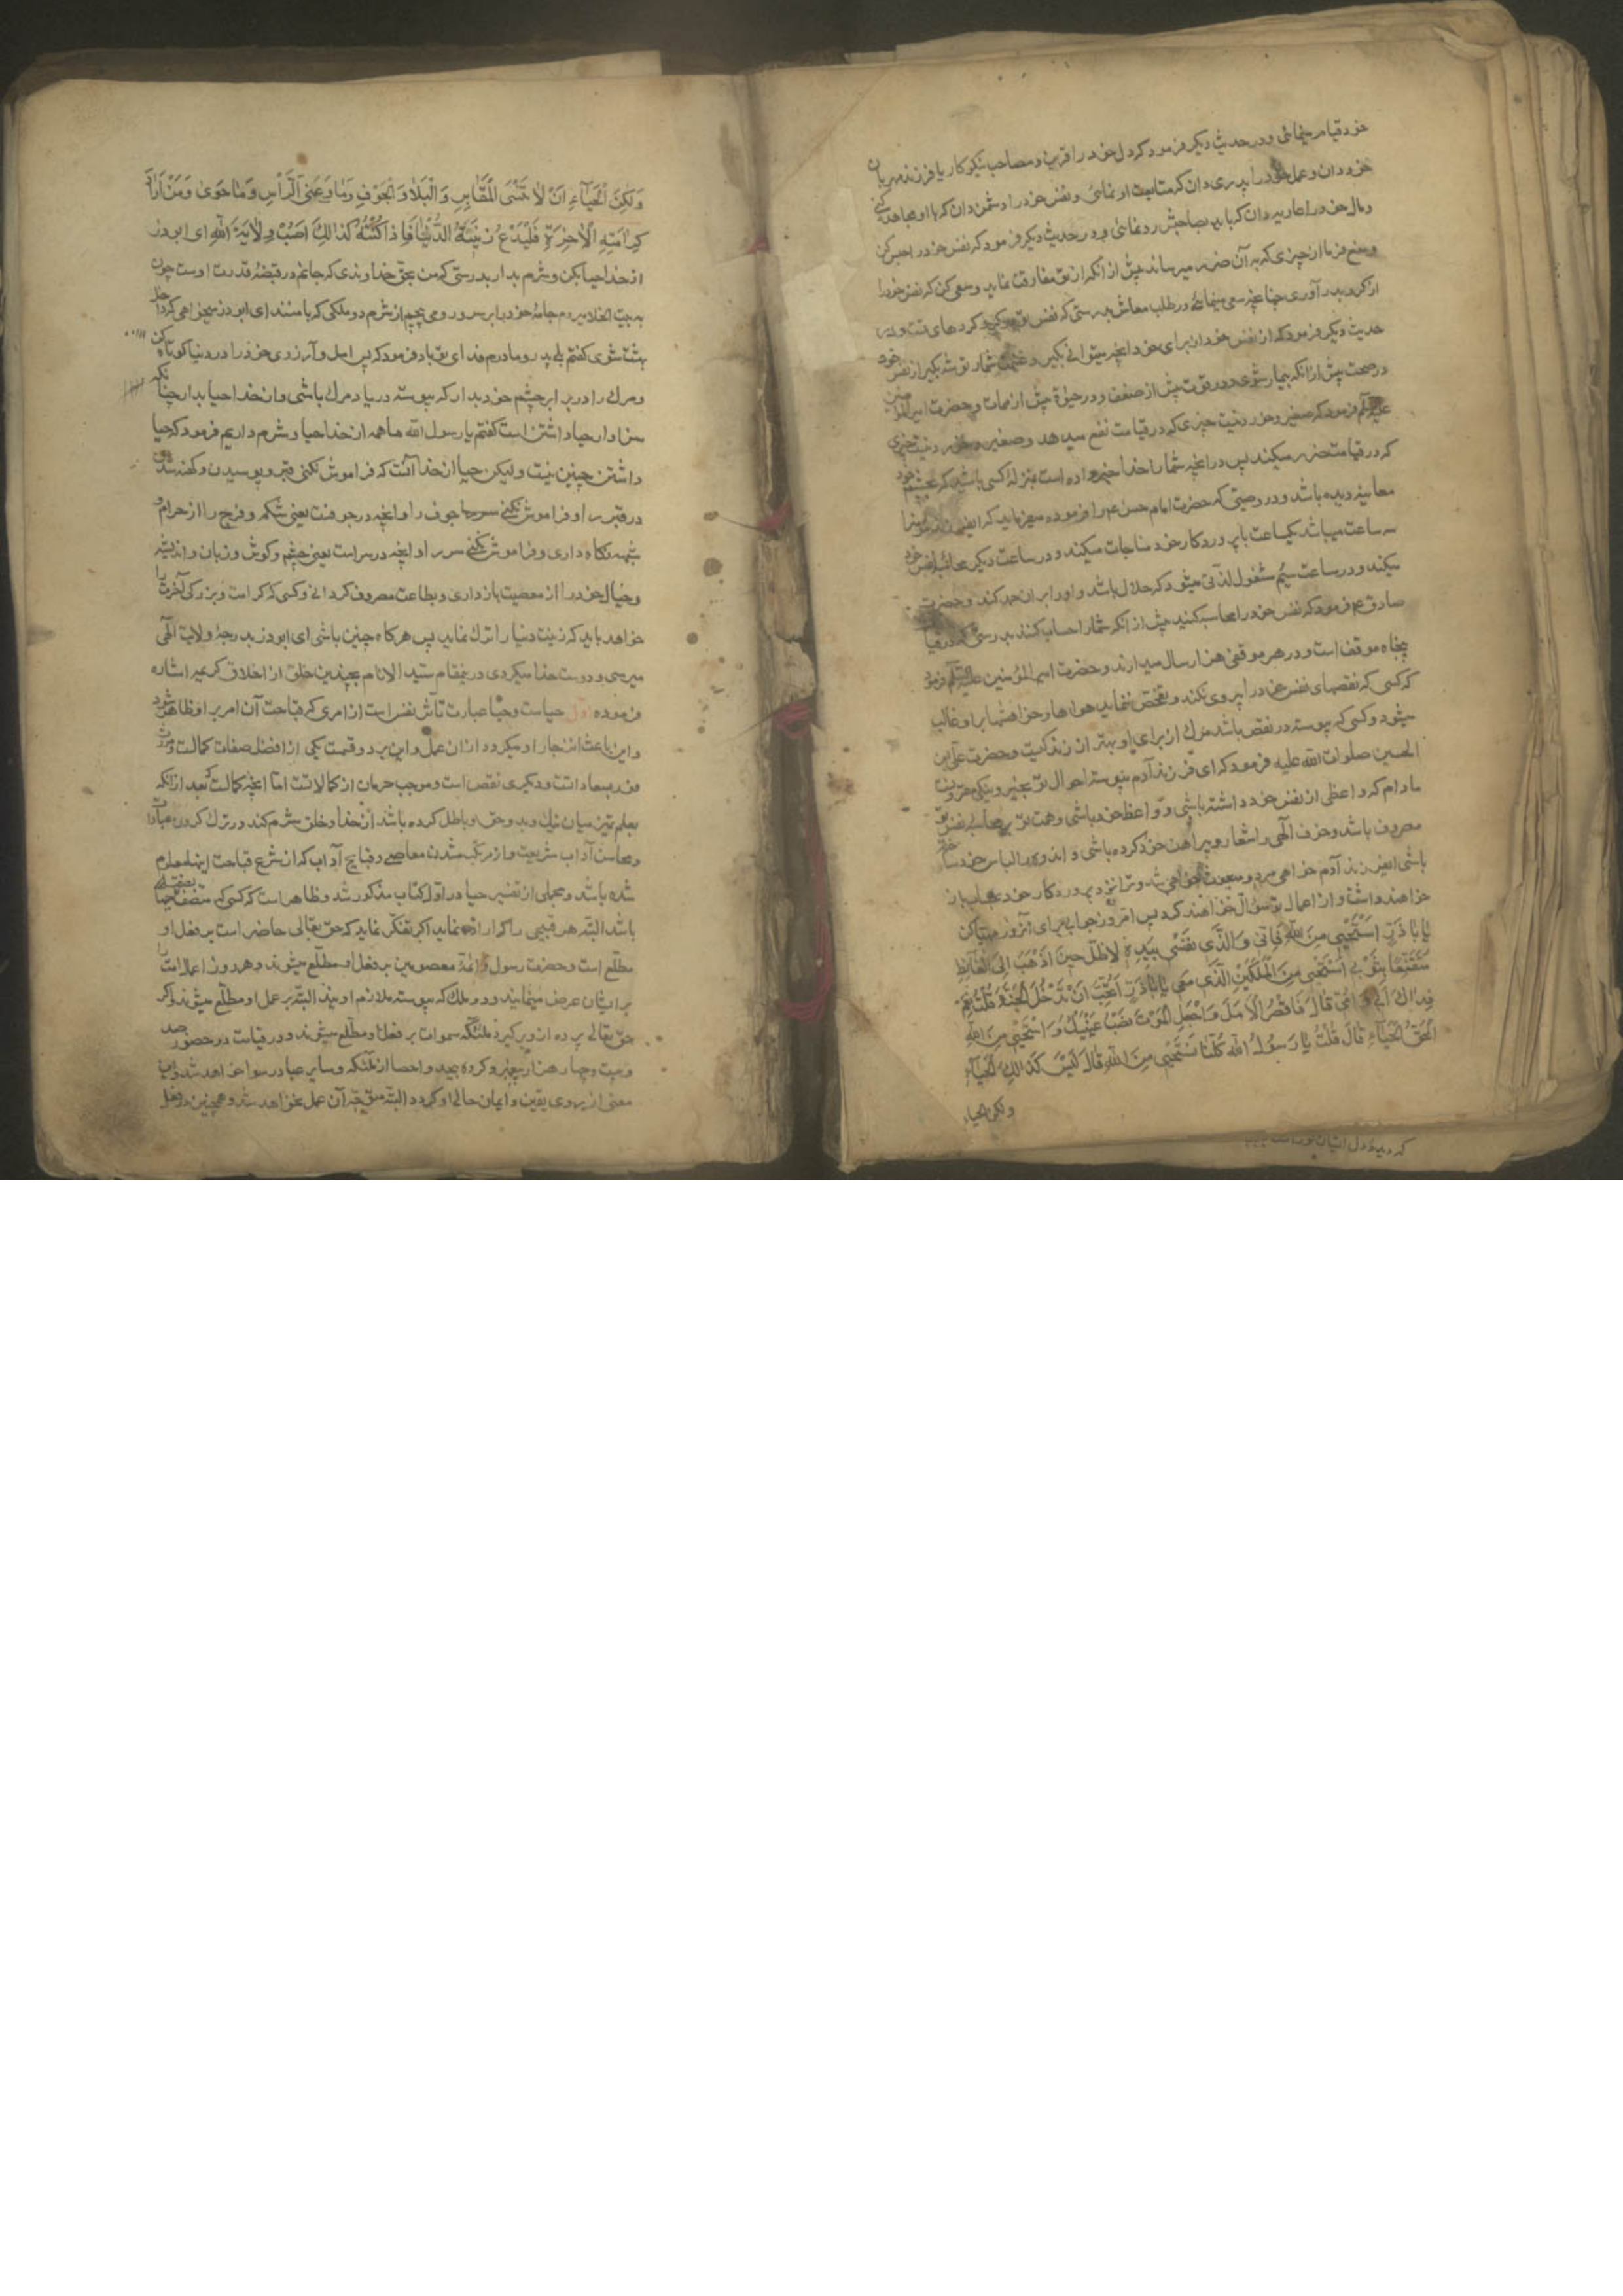 خود قیام مینمائی و در حدیث دیگر فرمود که دل خود را قرین و مصاحب نیکوکار یا فرزند مهربان
خود دان و عمل خود را پدری دان که متابعت او نمائی و نفس خود را دشمن دان که با او مجاهده کنی
و مال خود را عاریه دان که باید بصاحبش رد نمائی و در حدیث دیگر فرمود که نفس خود را حبس کن
و منع فرما از چیزی که به آن ضرر میرساند پیش از آنکه از تو مفارقت نماید و سعی کن که نفس خود را
از گرو بدر آوری چنانچه سعی مینمائی در طلب معاش بدرستی که نفس تو در گرو کردهای تست و در
حدیث دیگر فرمود که از نفس خود از برای خود آنچه میتوانی بگیر و غنیمت شمار توشه بگیر از نفس خود
در صحت پیش از آنکه بیمار شوی و در قوت پیش از ضعف و در حیوة پیش از ممات و حضرت امیرالمؤمنین
علیه السلم فرمود که صغیر و خورد نیست چیزی که در قیامت نفع میدهد و صغیر و خورد نیست چیزی
که در قیامت ضرر میکند پس در آنچه شما را خدا خبر داده است بمنزله کسی باشید که بچشم خود
معاینه دیده باشد و در وصیتی که حضرت امام حسن ع را فرموده میفرماید که ای فرزند مؤمن را
سه ساعت میباشد یکساعت با پروردگار خود مناجات میکند و در ساعت دیگر محاسبه نفس خود
میکند و در ساعت سیم مشغول لذتی میشود که حلال باشد و او را بر آن حمد کند و حضرت
صادق ع فرمود که نفس خود را محاسبه کنید پیش از آنکه شما را حساب کنند بدرستی که در قیامت
پنجاه موقف است و در هر موقفی هزار سال میدارند و حضرت امیرالمؤمنین علیه السلم فرمود
که کسی که نقصهای نفس خود را پیروی نکند و تفحص ننماید هواها و خواهشها بر او غالب
میشود و کسی که پیوسته در نقص باشد مرگ از برای او بهتر از زندگیست و حضرت علی بن
الحسین صلوات الله علیه فرمود که ای فرزند آدم پیوسته احوال تو بخیر و نیکی مقرونست
مادام که واعظی از نفس خود داشته باشی و واعظ خود باشی و همت تو بر محاسبه نفس تو
مصروف باشد و خوف الهی را شعار و پیراهن خود کرده باشی و اندوه را لباس خود ساخته
باشی ای فرزند آدم خواهی مرد و مبعوث خواهی شد و ترا نزد پروردگار خود بحساب باز
خواهند داشت و از اعمال تو سؤال خواهند کرد پس امروز جوابی برای آنروز مهیا کن
یا اباذر استحیی من الله فانی والذی نفسی بیده لاظل حین اذهب الی الغایط
متقنعا بثوبی استحیی من الملکین الذی معی یا اباذر اتحب ان تدخل الجنة قلت نعم
فداک ابی و امی قال فاقصر الامل واجعل الموت نصب عینیک واستحیی من الله
الحق الحیاء قال قلت یا رسول الله کلنا نستحیی من الله قال لیس کذالک الحیاء
ولکن الحیاء
وَلکِنَّ الحَیاءَ اَنْ لا تَنْسَی المَقابِرِ وَالْبَلاءَ وَالجَوْفِ وَما وَعَی الرَّأسِ وَما حَوَی وَمَنْ اَرادَ
کَرامَتِهِ الْاخِرَةِ فَلْیَدَعُ زینَةَ الدُّنْیا فَاِذا کُنْتَهُ کَذالِکَ اَصَبْتَ وِلایَةَ اللهِ ای ابوذر
از خدا حیا بکن و شرم بدار بدرستی که من بحق خداوندی که جانم در قبضه قدرت اوست چون
به بیت الخلا میروم جامه خود را بر سر و رو می پیچم از شرم دو ملکی که با منند ای ابوذر میخواهی که داخل
بهشت شوی گفتم بلی پدر و مادرم فدای تو باد فرمود که پس امل و آرزوی خود را در دنیا کوتاه کن
و مرگ را در برابر چشم خود بدار که پیوسته در یاد مرگ باشی و از خدا حیا بدار چنانکه
سزاوار حیا داشتن است گفتم یا رسول الله ما همه از خدا حیا و شرم داریم فرمود که حیا
داشتن چنین نیست ولیکن حیا از خدا آنست که فراموش نکنی قبر و پوسیدن و کهنه شدن
در قبر را و فراموش نکنی جوف را و آنچه در جوفست یعنی شکم و فرج را از حرام و
شبهه نگاه داری و فراموش نکنی سر را و آنچه در سر است یعنی چشم و گوش و زبان و اندیشه
و خیال خود را از معصیت بازداری و بطاعت مصروف گردانی و کسی که کرامت و بزرگی آخرت را
خواهد باید که زینت دنیا را ترک نماید پس هرگاه چنین باشی ای ابوذر بدرجه ولایت الهی
میرسی و دوست خدا میگردی در ینمقام سید الانام بچندین خلق از اخلاق کریمه اشاره
فرموده اول حیاست و حیا عبارت تأثر نفس است از امری که قباحت آن امر بر او ظاهر شود
و این باعث انزجار او میگردد از آن عمل و این بر دو قسمت یکی از افضل صفات کمالست و مورث
فوز بسعاداتست و دیگری نقص است و موجب حرمان از کمالاتست اما آنچه کمالست آنکه بعد از آنکه
بعلم تمیز میان نیک و بد و حق و باطل کرده باشد از خدا و خلق شرم کند در ترک کردن عبادات
و محاسن آداب شریعت و از مرتکب شدن معاصی و قبایح آداب که از شرع قباحت اینها معلوم
شده باشد و مجملی از تفسیر حیا در اول کتاب مذکور شد و ظاهر است که کسی که متصف بصفت حیا
باشد البته هر قبیحی را که اراده نماید اگر تفکر نماید که حق تعالی حاضر است بر فعل او
مطلع است و حضرت رسول و ائمه معصومین بر فعل او مطلع میشوند و هر روز اعمال امت را
بر ایشان عرض مینمایند و دو ملک که پیوسته ملازم اویند البته بر عمل او مطلع میشوند و اگر
حق تعالی پرده از او برگیرد ملئکه سموات بر فعل او مطلع میشوند و در قیامت در حضور صد
و بیست و چهار هزار پیغمبر و گروه بیحد و احصا از ملئکه و سایر عباد رسوا خواهد شد و این
معنی از روی یقین و ایمان حالی او گردد البته متوجه آن عمل نخواهد شد و همچنین در فعل